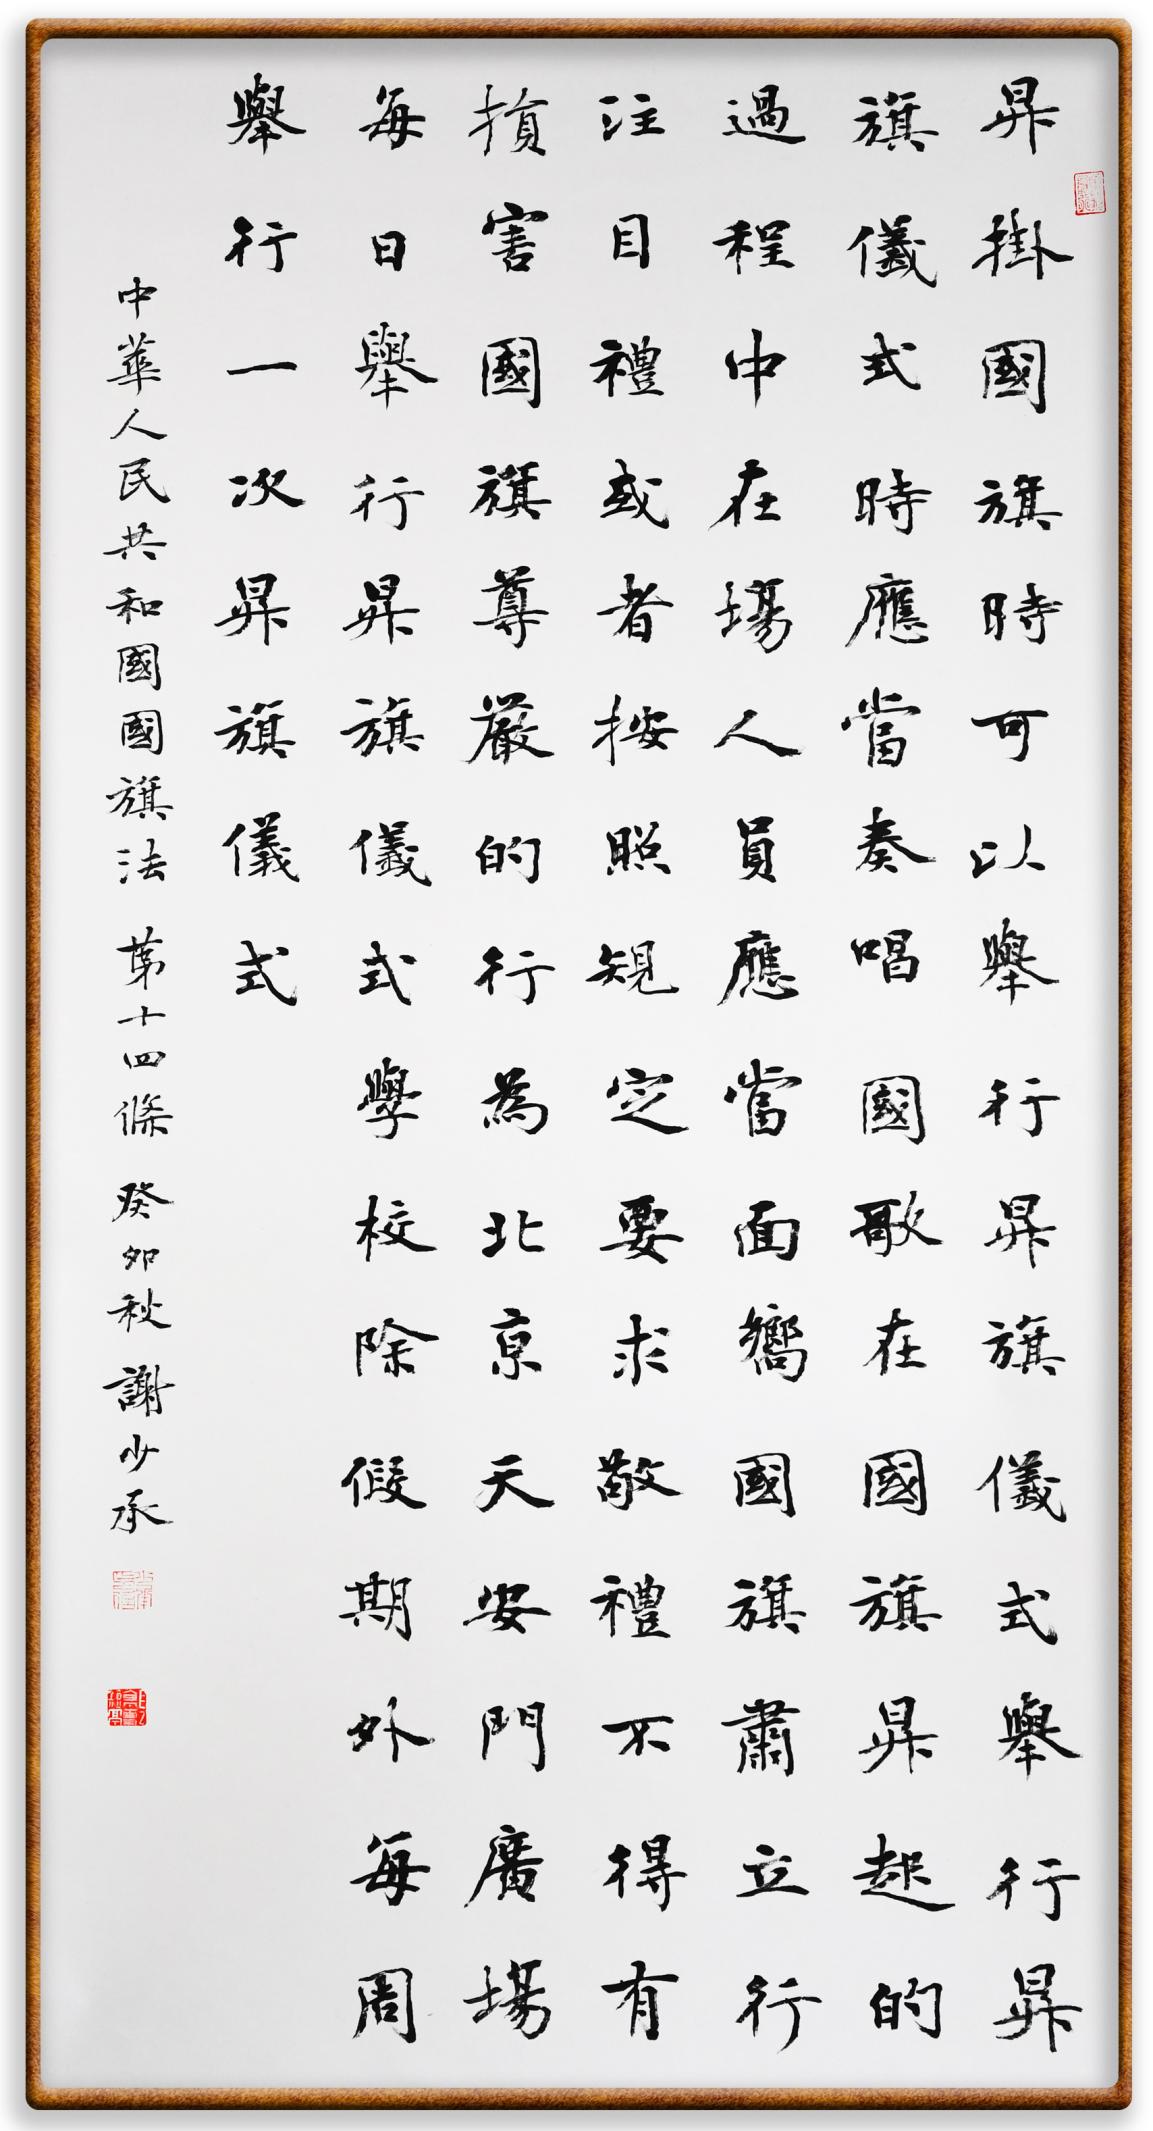 昇掛國旗時可以舉行昇旗儀式舉行昇
旗儀式時應當奏唱國歌在國旗昇起的
過程中在場人員應當面嚮國旗肅立行
注目禮或者按照規定要求敬禮不得有
損害國旗尊嚴的行為北京天安門廣場
每日舉行昇旗儀式學校除假期外每周
舉行一次昇旗儀式
中華人民共和國國旗法 第十四條 癸卯秋 謝少承